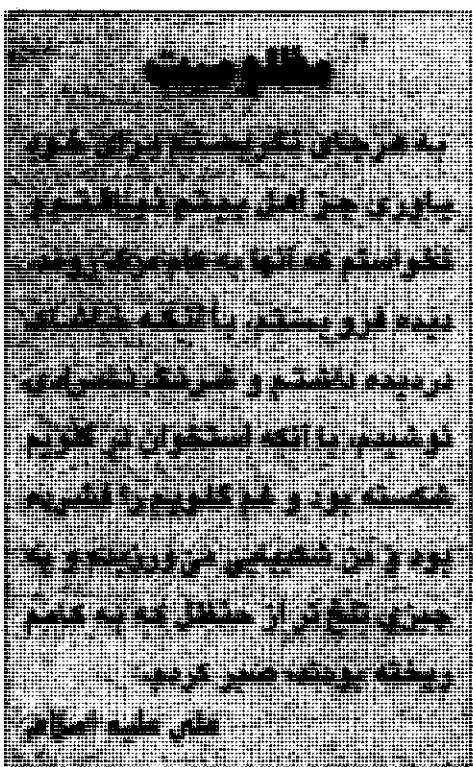 مظلومیت
به هرجای نگریستم برای خود
یاوری جز اهل بیتم نیافتم و
نخواستم که آنها به کام مرگ روند.
دیده فرو بستم، با آنکه خاشاک
در دیده داشتم و شرنگ نامرادی
نوشیدم، با آنکه استخوان در گلویم
شکسته بود و غم گلویم را فشرده
بود و من شکیبایی می‌ورزیدم و به
چیزی تلخ‌تر از حنظل که به کامم
ریخته بودند، صبر کردم.
علی علیه السلام